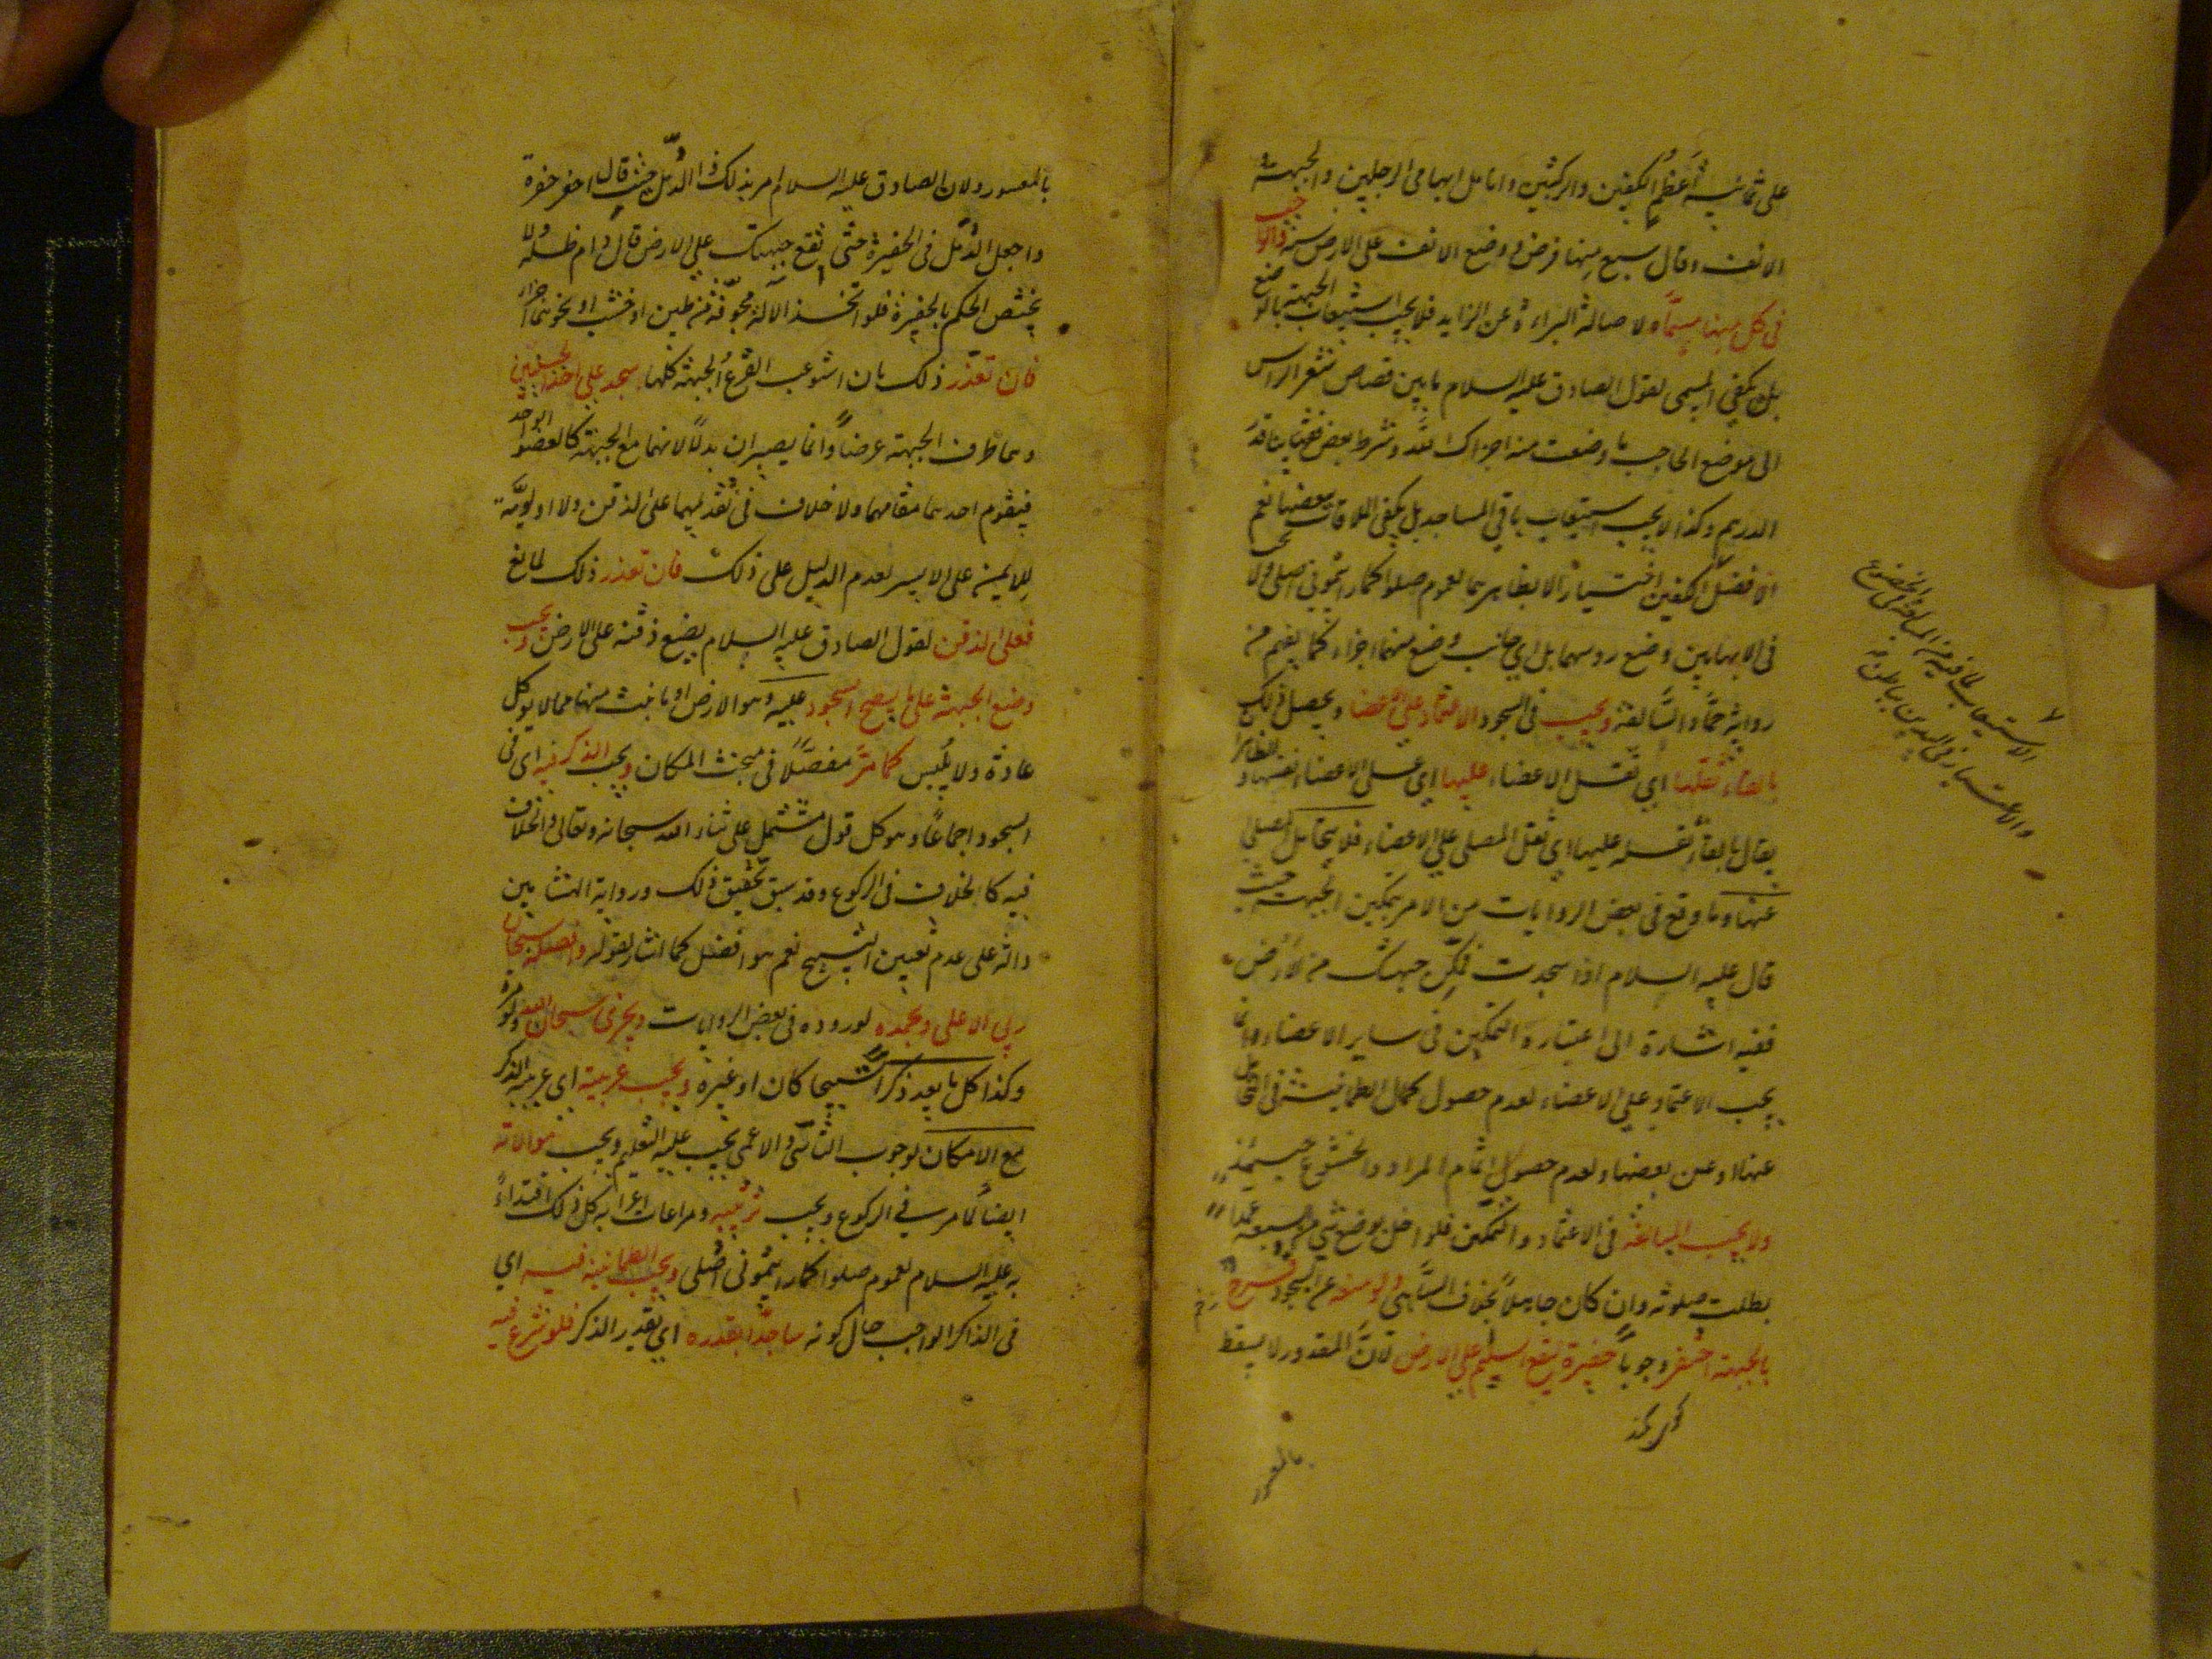 على ثمانية أعظم الكفين والركبتين وانامل ابهامى الرجلين والجبهة و
الانف وقال سبع منها فرض ووضع الانف على الارض سنة والواجب
فى كل منها مسماه ولاصالة البراءة عن الزايد فلا يجب استيعاب الجبهة بالوضع
بل يكفى المسمى لقول الصادق عليه السلام ما بين قصاص شعر الراس
الى موضع الحاجب ما وضعت منه اجزاك الله وشرط بعض قدر
الدرهم وكذا لا يجب استيعاب باقي المساجد بل يكفى الملاقات ببعضها نعم
الافضل الكفين اختيارا لا بظاهرهما لعموم صلوا كما رايتموني اصلى ولا
فى الابهامين وضع روسهما بل اي جانب وضع منهما اجزاء كما يفهم من
رواية حماد السالفة ويجب فى السجود الاعتماد على الاعضا ويحصل ذلك
بالقاء ثقلها اي ثقل الاعضاء عليها اي على الاعضاء نفسها و
يقال بالقاء ثقله عليها اي ثقل المصلى على الاعضاء فلا يتحامل المصلى
عنها وما وقع فى بعض الروايات من الامر بتمكين الجبهة حيث
قال عليه السلام اذا سجدت فمكن جبهتك من الارض
ففيه اشارة الى اعتبار التمكين فى ساير الاعضاء وانما
يجب الاعتماد على الاعضاء لعدم حصول كمال الطمانينة فى التحامل
عنها او عن بعضها ولعدم حصول اتمام المراد والخشوع حينئذ
ولا يجب المبالغة فى الاعتماد والتمكين فلو اخل بوضع شي من السبعة عمدا
بطلت صلوته وان كان جاهلا بخلاف الساهى ولو منعه عن السجود قرح
بالجبهة احتفر وجوبا حفيرة ليقع السليم على الارض لان المقدور لا يسقط
بالمعسور
الاستيعاب لما فيه من المبالغة فى الخضوع
والاعتبار فى اليدين بباطن
بالمعسور ولان الصادق عليه السلام امر بذلك ذا الدمل حيث قال احفر حفرة
واجعل الدمل فى الحفيرة حتى تقع جبهتك على الارض قال دام ظله لا
يختص الحكم بالحفيرة فلو اتخذ الآلة مجوفة من طين او خشب او نحوهما
فان تعذر ذلك بان استوعب القرح الجبهة كلها سجد على احد الجبينين
وهما طرف الجبهة عرضا وانما يصيران بدلا لانهما مع الجبهة كالعضو الواحد
فيقوم احدهما مقامهما ولا خلاف فى تقديمهما على الذقن ولا اولوية
للايمن على الايسر لعدم الدليل على ذلك فان تعذر ذلك لمانع
فعلى الذقن لقول الصادق عليه السلام يضع ذقنه على الارض ويجب
وضع الجبهة على ما يصح السجود عليه وهو الارض او ما نبت منها مما لا يوكل
عادة ولا يلبس كما مر مفصلا فى مبحث المكان ويجب الذكر فيه اى فى
السجود اجماعا وهو كل قول مشتمل على ثناء الله سبحانه وتعالى والخلاف
فيه كالخلاف فى الركوع وقد سبق تحقيق ذلك ورواية الهشامين
دالة على عدم تعيين التسبيح نعم هو افضل كما اشار بقوله وافضله سبحان
ربي الاعلى وبحمده لوروده فى بعض الروايات ويجزى سبحان الله ولو مرة
وكذا كل ما يعد ذكرا تسبيحا كان او غيره ويجب عربية اي عربية الذكر
مع الامكان لوجوب التاسى والاعمى يجب عليه التعليم ويجب موالاته
ايضا لما مر في الركوع ويجب ترتيبه ومراعات اعرابه كل ذلك اقتداء
به عليه السلام لعموم صلوا كما رايتموني اصلى ويجب الطمانينة فيه اي
فى الذكر الواجب حال كونه ساجدا بقدره اي بقدر الذكر فلو شرع فيه